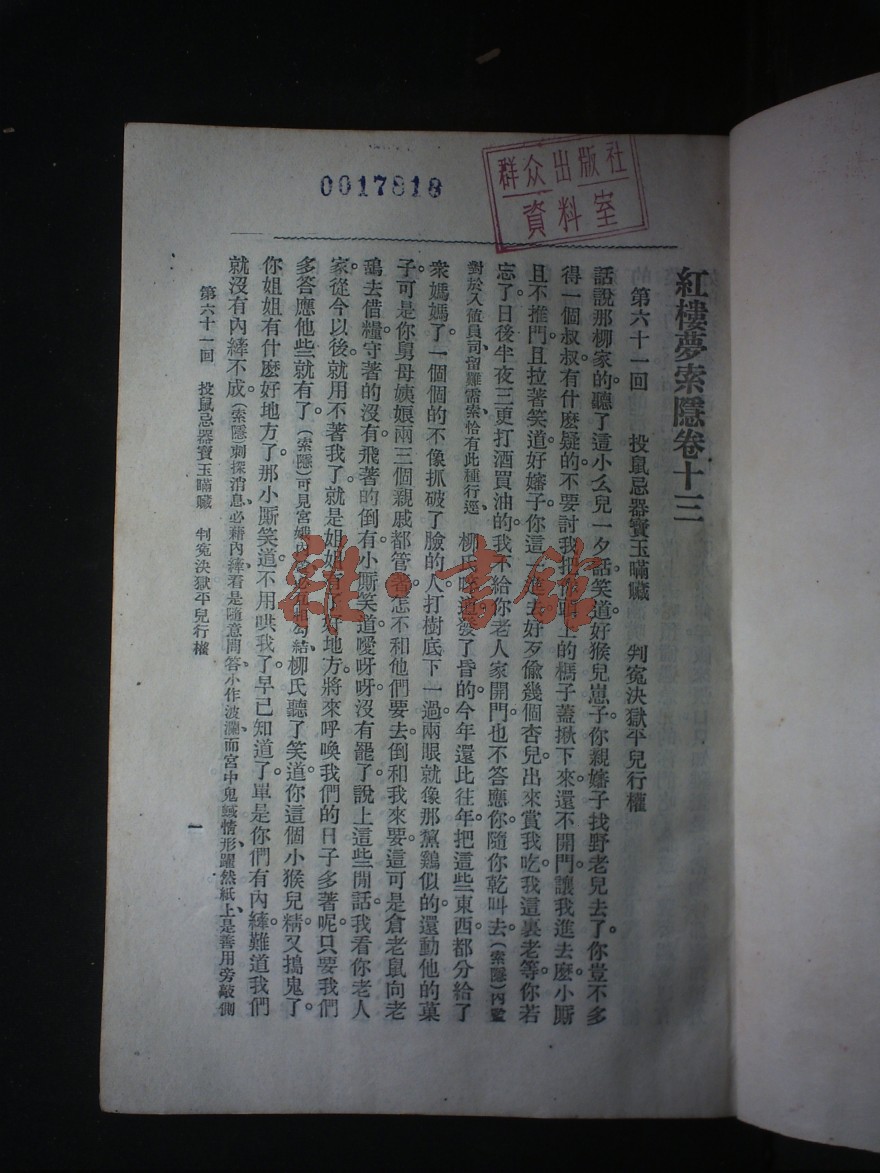 0017818
群众出版社
資料室
紅樓夢索隱卷十三
第六十一回 投鼠忌器寶玉瞞贓 判冤決獄平兒行權
話說那柳家的聽了這小么兒一夕話笑道好猴兒崽子你親嬸子找野老兒去了你豈不多
得一個叔叔有什麼疑的不要討我把你頭上的榪子蓋揪下來還不開門讓我進去麼小厮
且不推門且拉著笑道好嬸子你這一進去好歹偸幾個杏兒出來賞我吃我這裏老等你若
忘了日後半夜三更打酒買油的我不給你老人家開門也不答應你隨你乾叫去。(索隱)內監
對於入值員司留難需索恰有此種行逕、柳氏啐道發了昏的今年還比往年把這些東西都分給了
衆媽媽了一個個的不像抓破了臉的人打樹底下一過兩眼就像那黧鷄似的還動他的菓
子可是你舅母姨娘兩三個親戚都管著怎不和他們要去倒和我來要這可是倉老鼠向老
鴰去借糧守著的沒有飛著的倒有小厮笑道噯呀呀沒有罷了說上這些閒話我看你老人
家從今以後就用不著我了就是姐姐有了好地方將來呼喚我們的日子多著呢只要我們
多答應他些就有了。(索隱)可見宮 結、柳氏聽了笑道你這個小猴兒精又搗鬼了
你姐姐有什麼好地方了那小厮笑道不用哄我了早已知道了單是你們有內縴難道我們
就沒有內縴不成。(索隱)刺探消息、必藉內縴看是隨意問答、小作波瀾、而宮中鬼蜮情形、躍然紙上、是善用旁敲側
第六十一回 投鼠忌器寶玉瞞贓 判冤決獄平兒行權
一
雜·書館